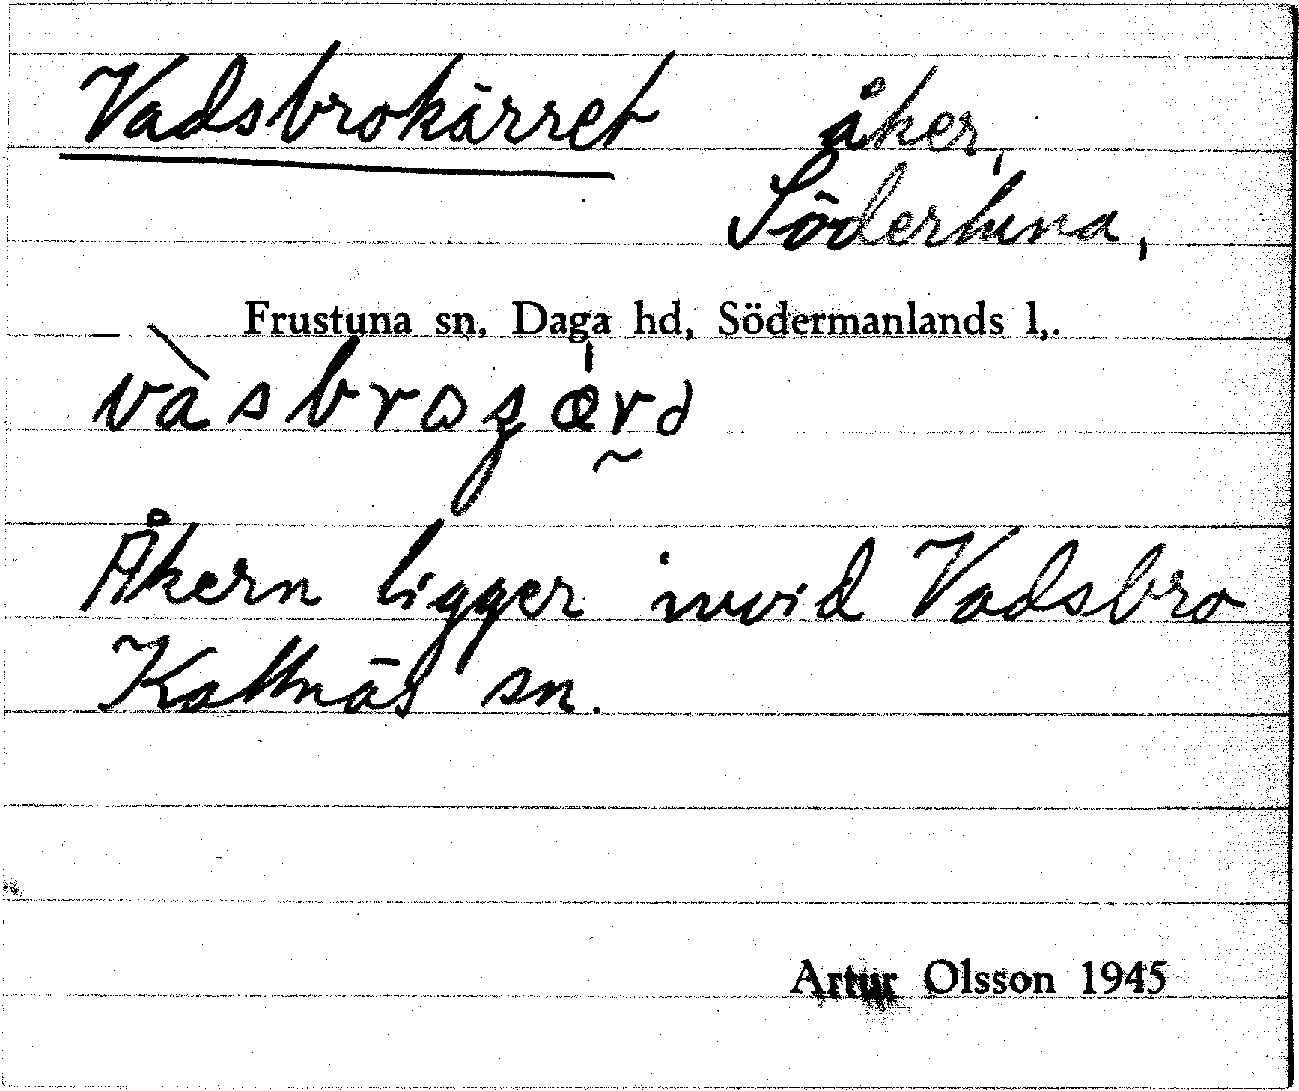 Vadsbrokärret åker,
Södertuna,
Frustuna sn, Daga hd, Södermanlands l,.
Åkern ligger invid Vadsbro
Kattnäs sn.
Artur Olsson 1945